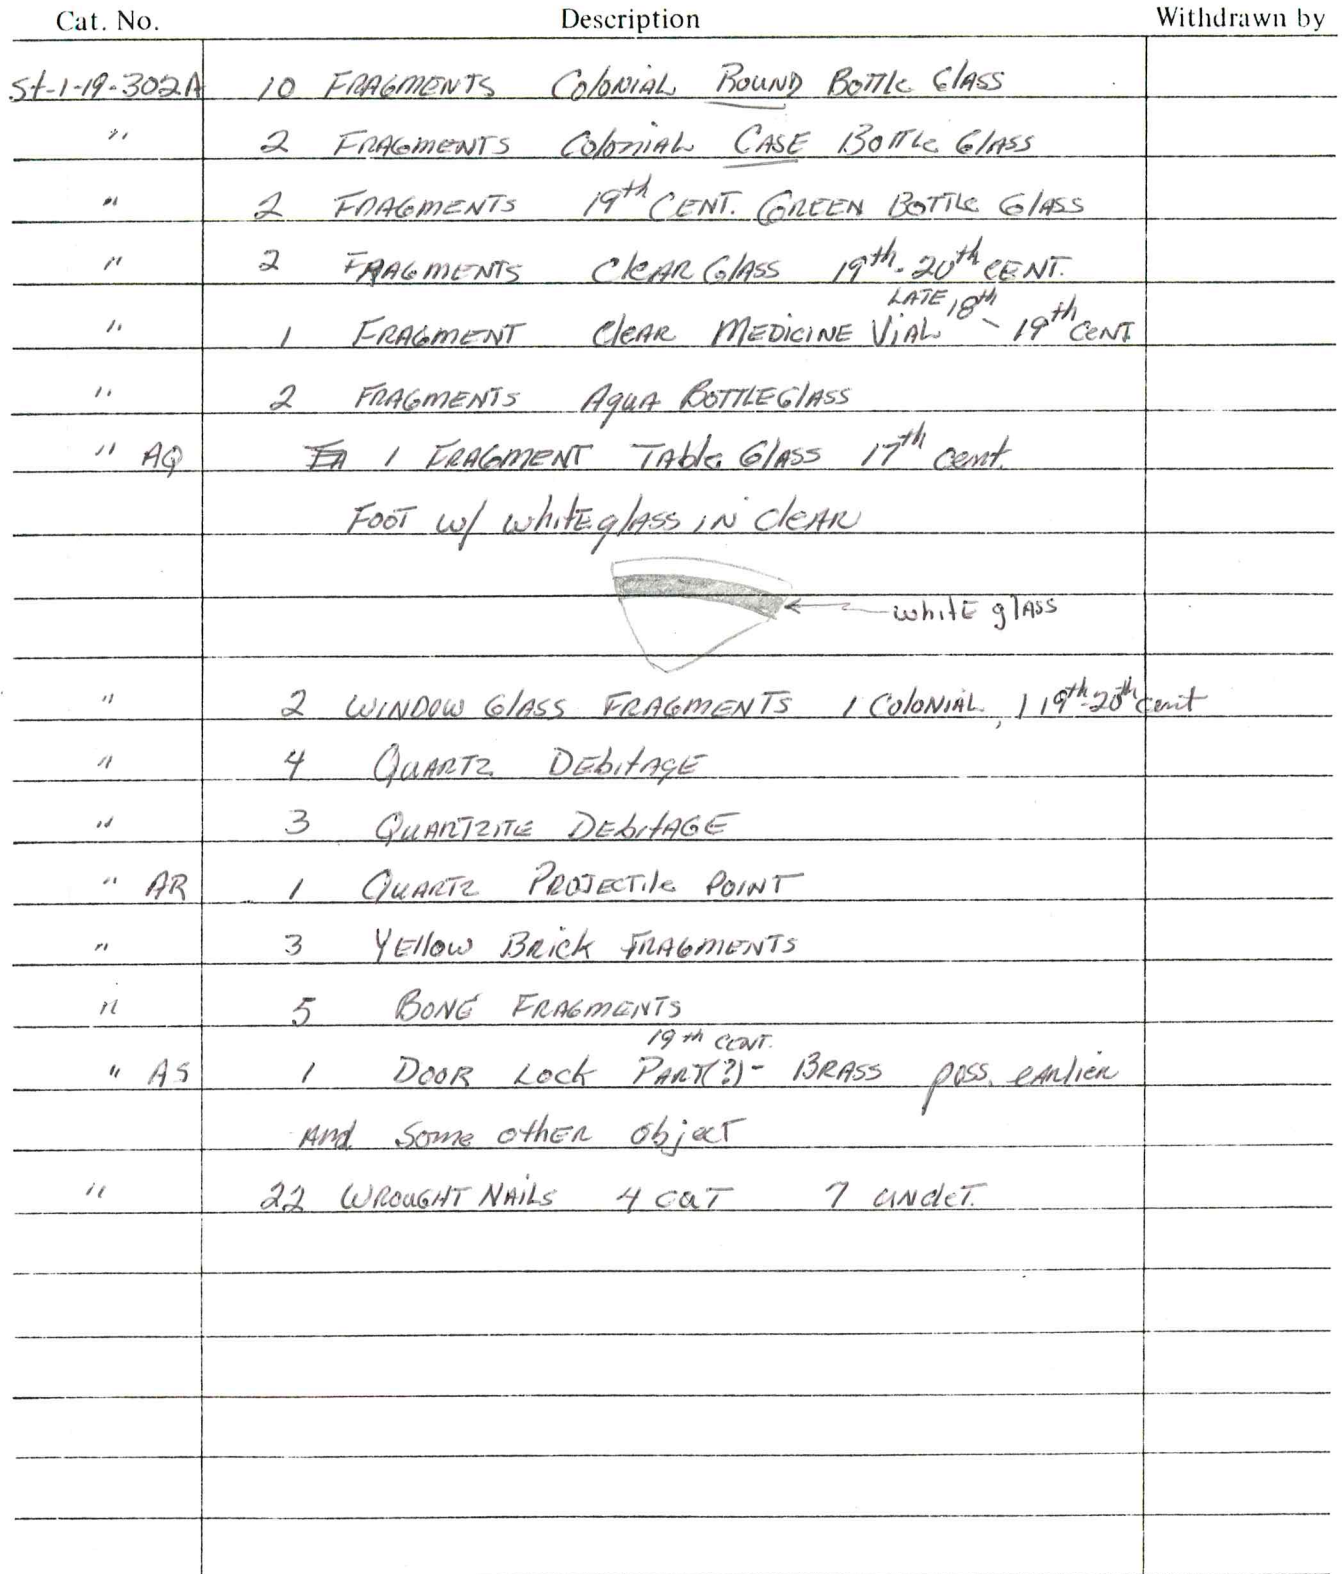 Cat. No. Description Withdrawn by
St-1-19-302A 10 FRAGMENTS COLONIAL ROUND BOTTLE GLASS
" 2 FRAGMENTS COLONIAL CASE BOTTLE GLASS
" 2 FRAGMENTS 19th CENT. GREEN BOTTLE GLASS
" 2 FRAGMENTS CLEAR GLASS 19th-20th CENT.
" 1 FRAGMENT CLEAR MEDICINE VIAL LATE 18th - 19th CENT
" 2 FRAGMENTS AQUA BOTTLE GLASS
" AQ 1 FRAGMENT TABLE GLASS 17th cent.
FOOT w/ white glass in CLEAR
white glass
" 2 WINDOW GLASS FRAGMENTS 1 COLONIAL, 1 19th-20th cent
" 4 QUARTZ DEBITAGE
" 3 QUARTZITE DEBITAGE
" AR 1 QUARTZ PROJECTILE POINT
" 3 YELLOW BRICK FRAGMENTS
" 5 BONE FRAGMENTS
19th CENT.
" AS 1 DOOR LOCK PART(?) - BRASS poss. earlier
And Some other object
" 22 WROUGHT NAILS 4 CUT 7 UNDET.